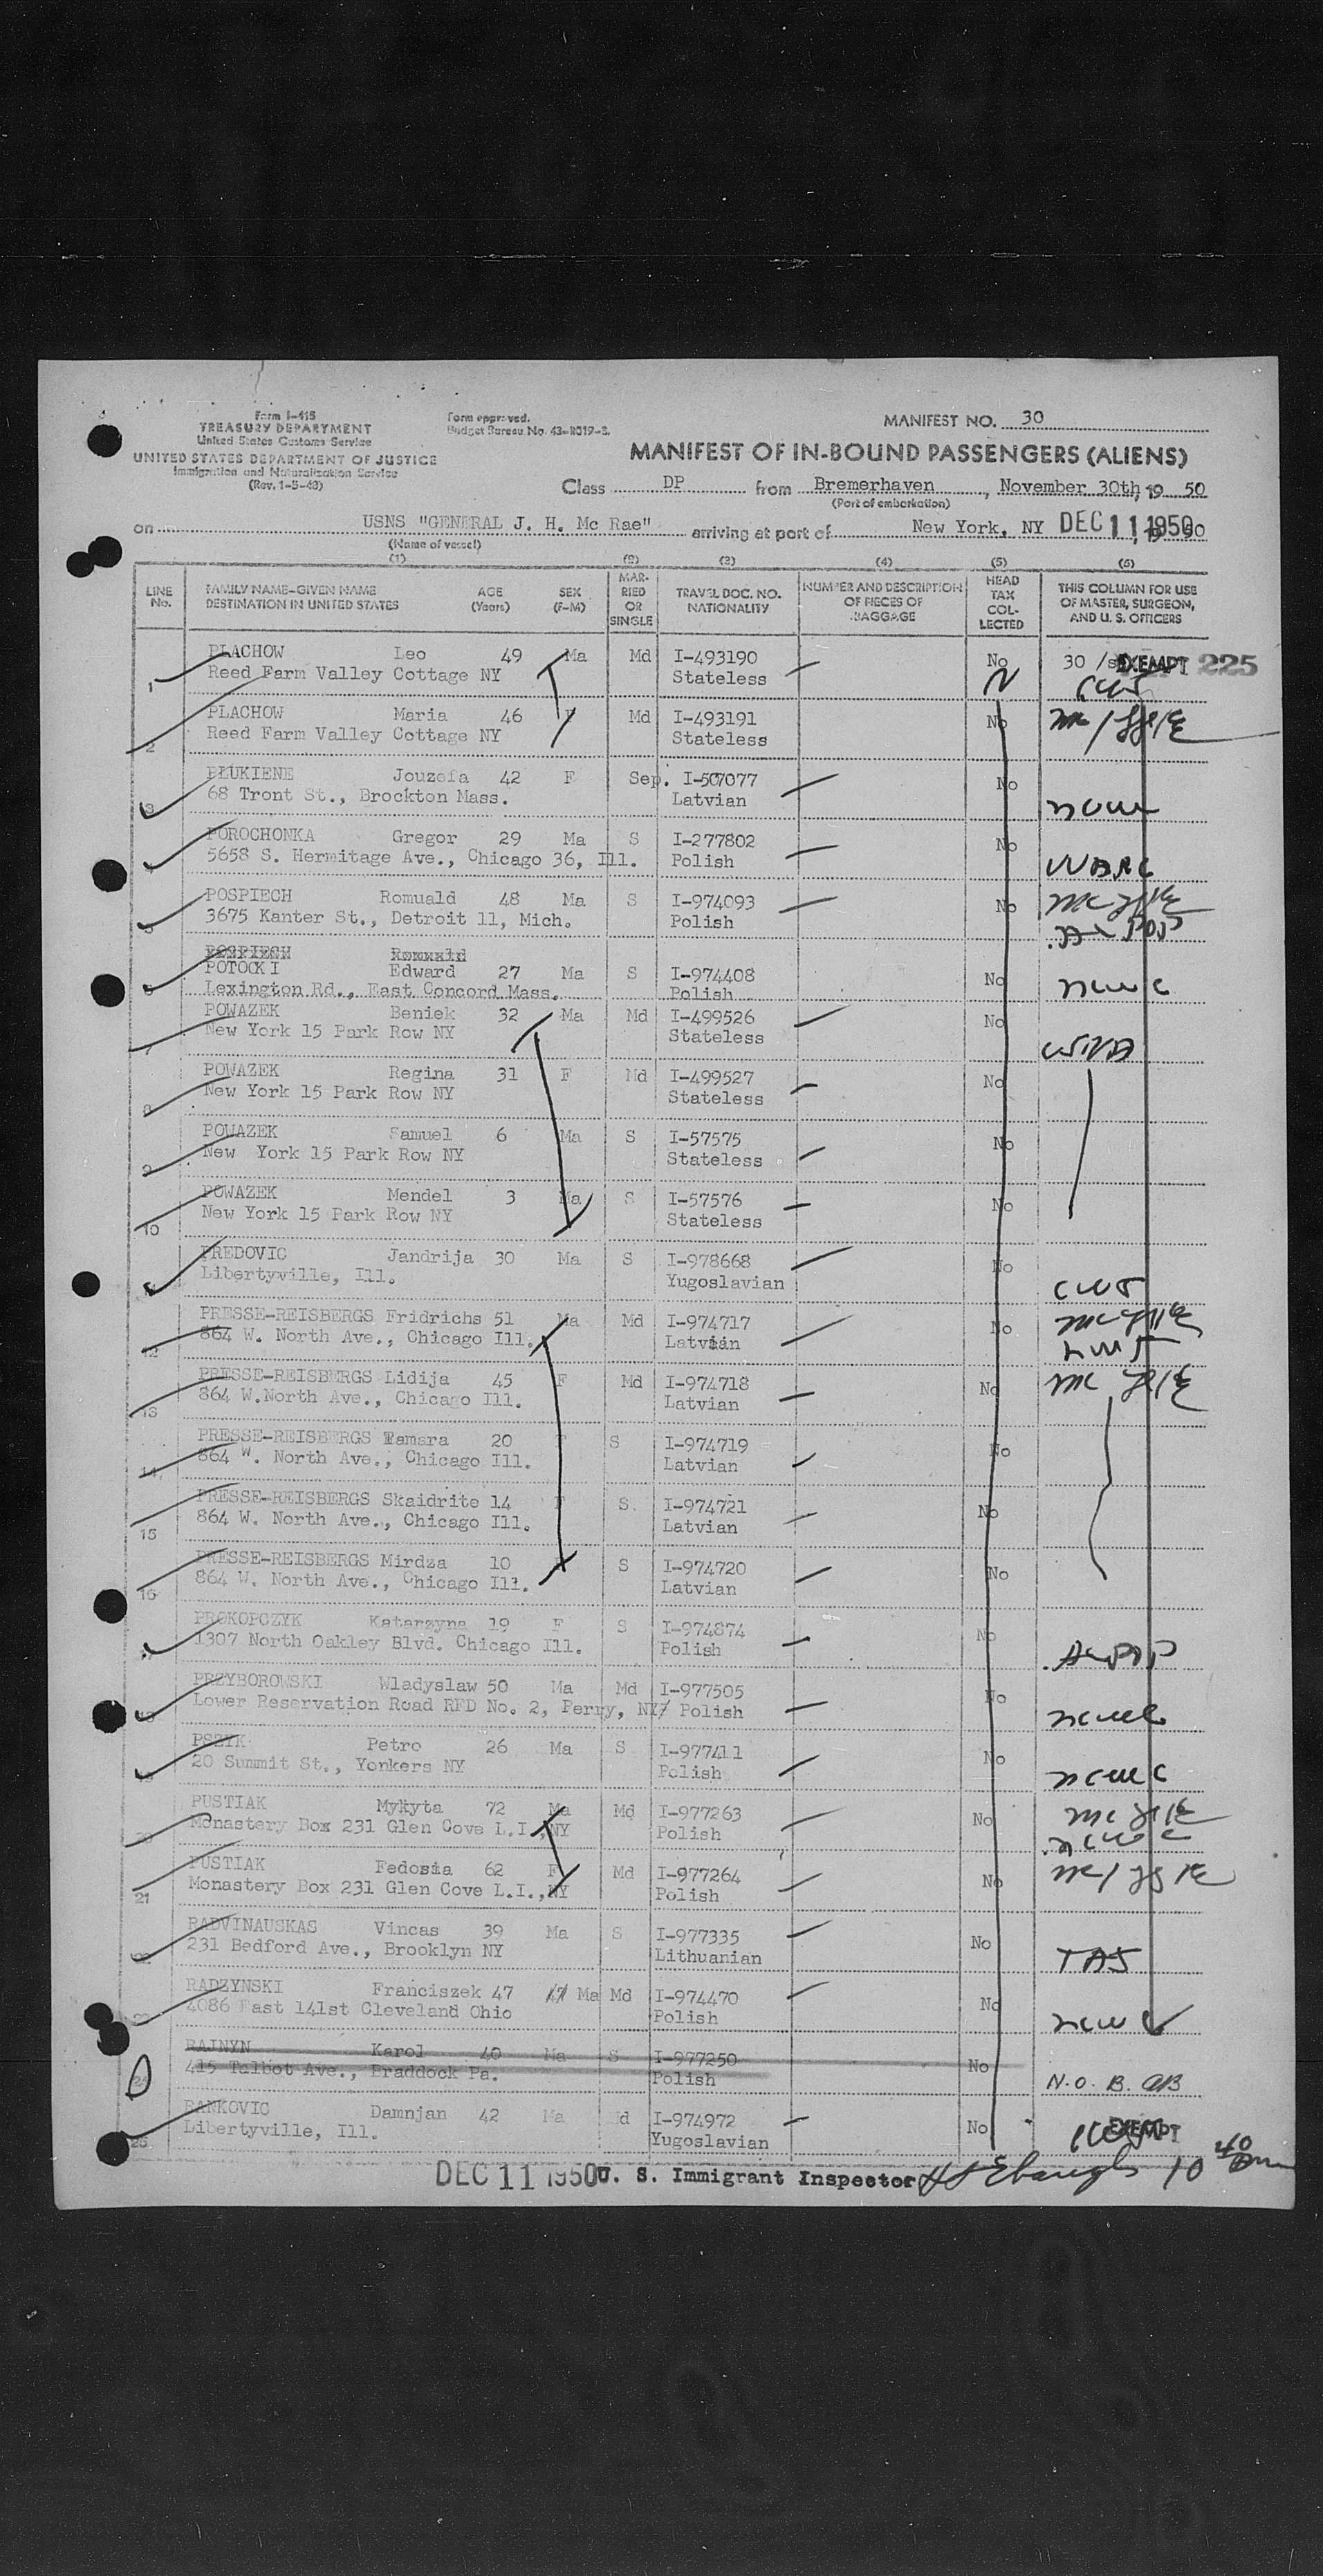 Form I-415
TREASURY DEPARTMENT
United States Customs Service
UNITED STATES DEPARTMENT OF JUSTICE
Immigration and Naturalization Service
(Rev. 1-5-48)
Form approved.
Budget Bureau No. 43-R019-3.
MANIFEST NO. 30
MANIFEST OF IN-BOUND PASSENGERS (ALIENS)
Class DP from Bremerhaven, November 30th, 19 50
(Port of embarkation)
on USNS "GENERAL J. H. Mc Rae" arriving at port of New York, NY DEC 11 1950
(Name of vessel)
(1) (2) (3) (4) (5) (6)
LINE No. FAMILY NAME-GIVEN NAME DESTINATION IN UNITED STATES AGE (Years) SEX (F-M) MARRIED OR SINGLE TRAVEL DOC. NO. NATIONALITY NUMBER AND DESCRIPTION OF PIECES OF BAGGAGE HEAD TAX COLLECTED THIS COLUMN FOR USE OF MASTER, SURGEON, AND U. S. OFFICERS
PLACHOW Leo 49 Ma Md I-493190 No 30 EXEMPT 225
1 Reed Farm Valley Cottage NY Stateless
PLACHOW Maria 46 F Md I-493191 No
2 Reed Farm Valley Cottage NY Stateless
PLUKIENE Jouzefa 42 F Sep. I-507077 No
3 68 Tront St., Brockton Mass. Latvian
POROCHONKA Gregor 29 Ma S I-277802 No
4 5658 S. Hermitage Ave., Chicago 36, Ill. Polish
POSPIECH Romuald 48 Ma S I-974093 No
5 3675 Kanter St., Detroit 11, Mich. Polish
POSPIECH Romuald
POTOCKI Edward 27 Ma S I-974408 No
6 Lexington Rd., East Concord Mass. Polish
POWAZEK Beniek 32 Ma Md I-499526 No
7 New York 15 Park Row NY Stateless
POWAZEK Regina 31 F Md I-499527 No
8 New York 15 Park Row NY Stateless
POWAZEK Samuel 6 Ma S I-57575 No
9 New York 15 Park Row NY Stateless
POWAZEK Mendel 3 Ma S I-57576 No
10 New York 15 Park Row NY Stateless
PREDOVIC Jandrija 30 Ma S I-978668 No
11 Libertyville, Ill. Yugoslavian
PRESSE-REISBERGS Fridrichs 51 Ma Md I-974717 No
12 864 W. North Ave., Chicago Ill. Latvian
PRESSE-REISBERGS Lidija 45 F Md I-974718 No
13 864 W.North Ave., Chicago Ill. Latvian
PRESSE-REISBERGS Tamara 20 F S I-974719 No
14 864 W. North Ave., Chicago Ill. Latvian
PRESSE-REISBERGS Skaidrite 14 F S. I-974721 No
15 864 W. North Ave., Chicago Ill. Latvian
PRESSE-REISBERGS Mirdza 10 F S I-974720 No
16 864 W. North Ave., Chicago Ill. Latvian
PROKOPCZYK Katarzyna 19 F S I-974874 No
1307 North Oakley Blvd. Chicago Ill. Polish
PRZYBOROWSKI Wladyslaw 50 Ma Md I-977505 No
Lower Reservation Road RFD No. 2, Perry, NY Polish
PSZYK Petro 26 Ma S I-977411 No
20 Summit St., Yonkers NY Polish
PUSTIAK Mykyta 72 Ma Md I-977263 No
20 Monastery Box 231 Glen Cove L.I., NY Polish
PUSTIAK Fedosia 62 F Md I-977264 No
21 Monastery Box 231 Glen Cove L.I., NY Polish
RADVINAUSKAS Vincas 39 Ma S I-977335 No
22 231 Bedford Ave., Brooklyn NY Lithuanian TAS
RADZYNSKI Franciszek 47 47 Ma Md I-974470 No
23 4086 East 141st Cleveland Ohio Polish
RAJNYN Karol 40 Ma S I-977250 No
24 415 Talbot Ave., Braddock Pa. Polish N.O.B.
RANKOVIC Damnjan 42 Ma Md I-974972 No EXEMPT
25 Libertyville, Ill. Yugoslavian
DEC 11 1950 U. S. Immigrant Inspector 10 40